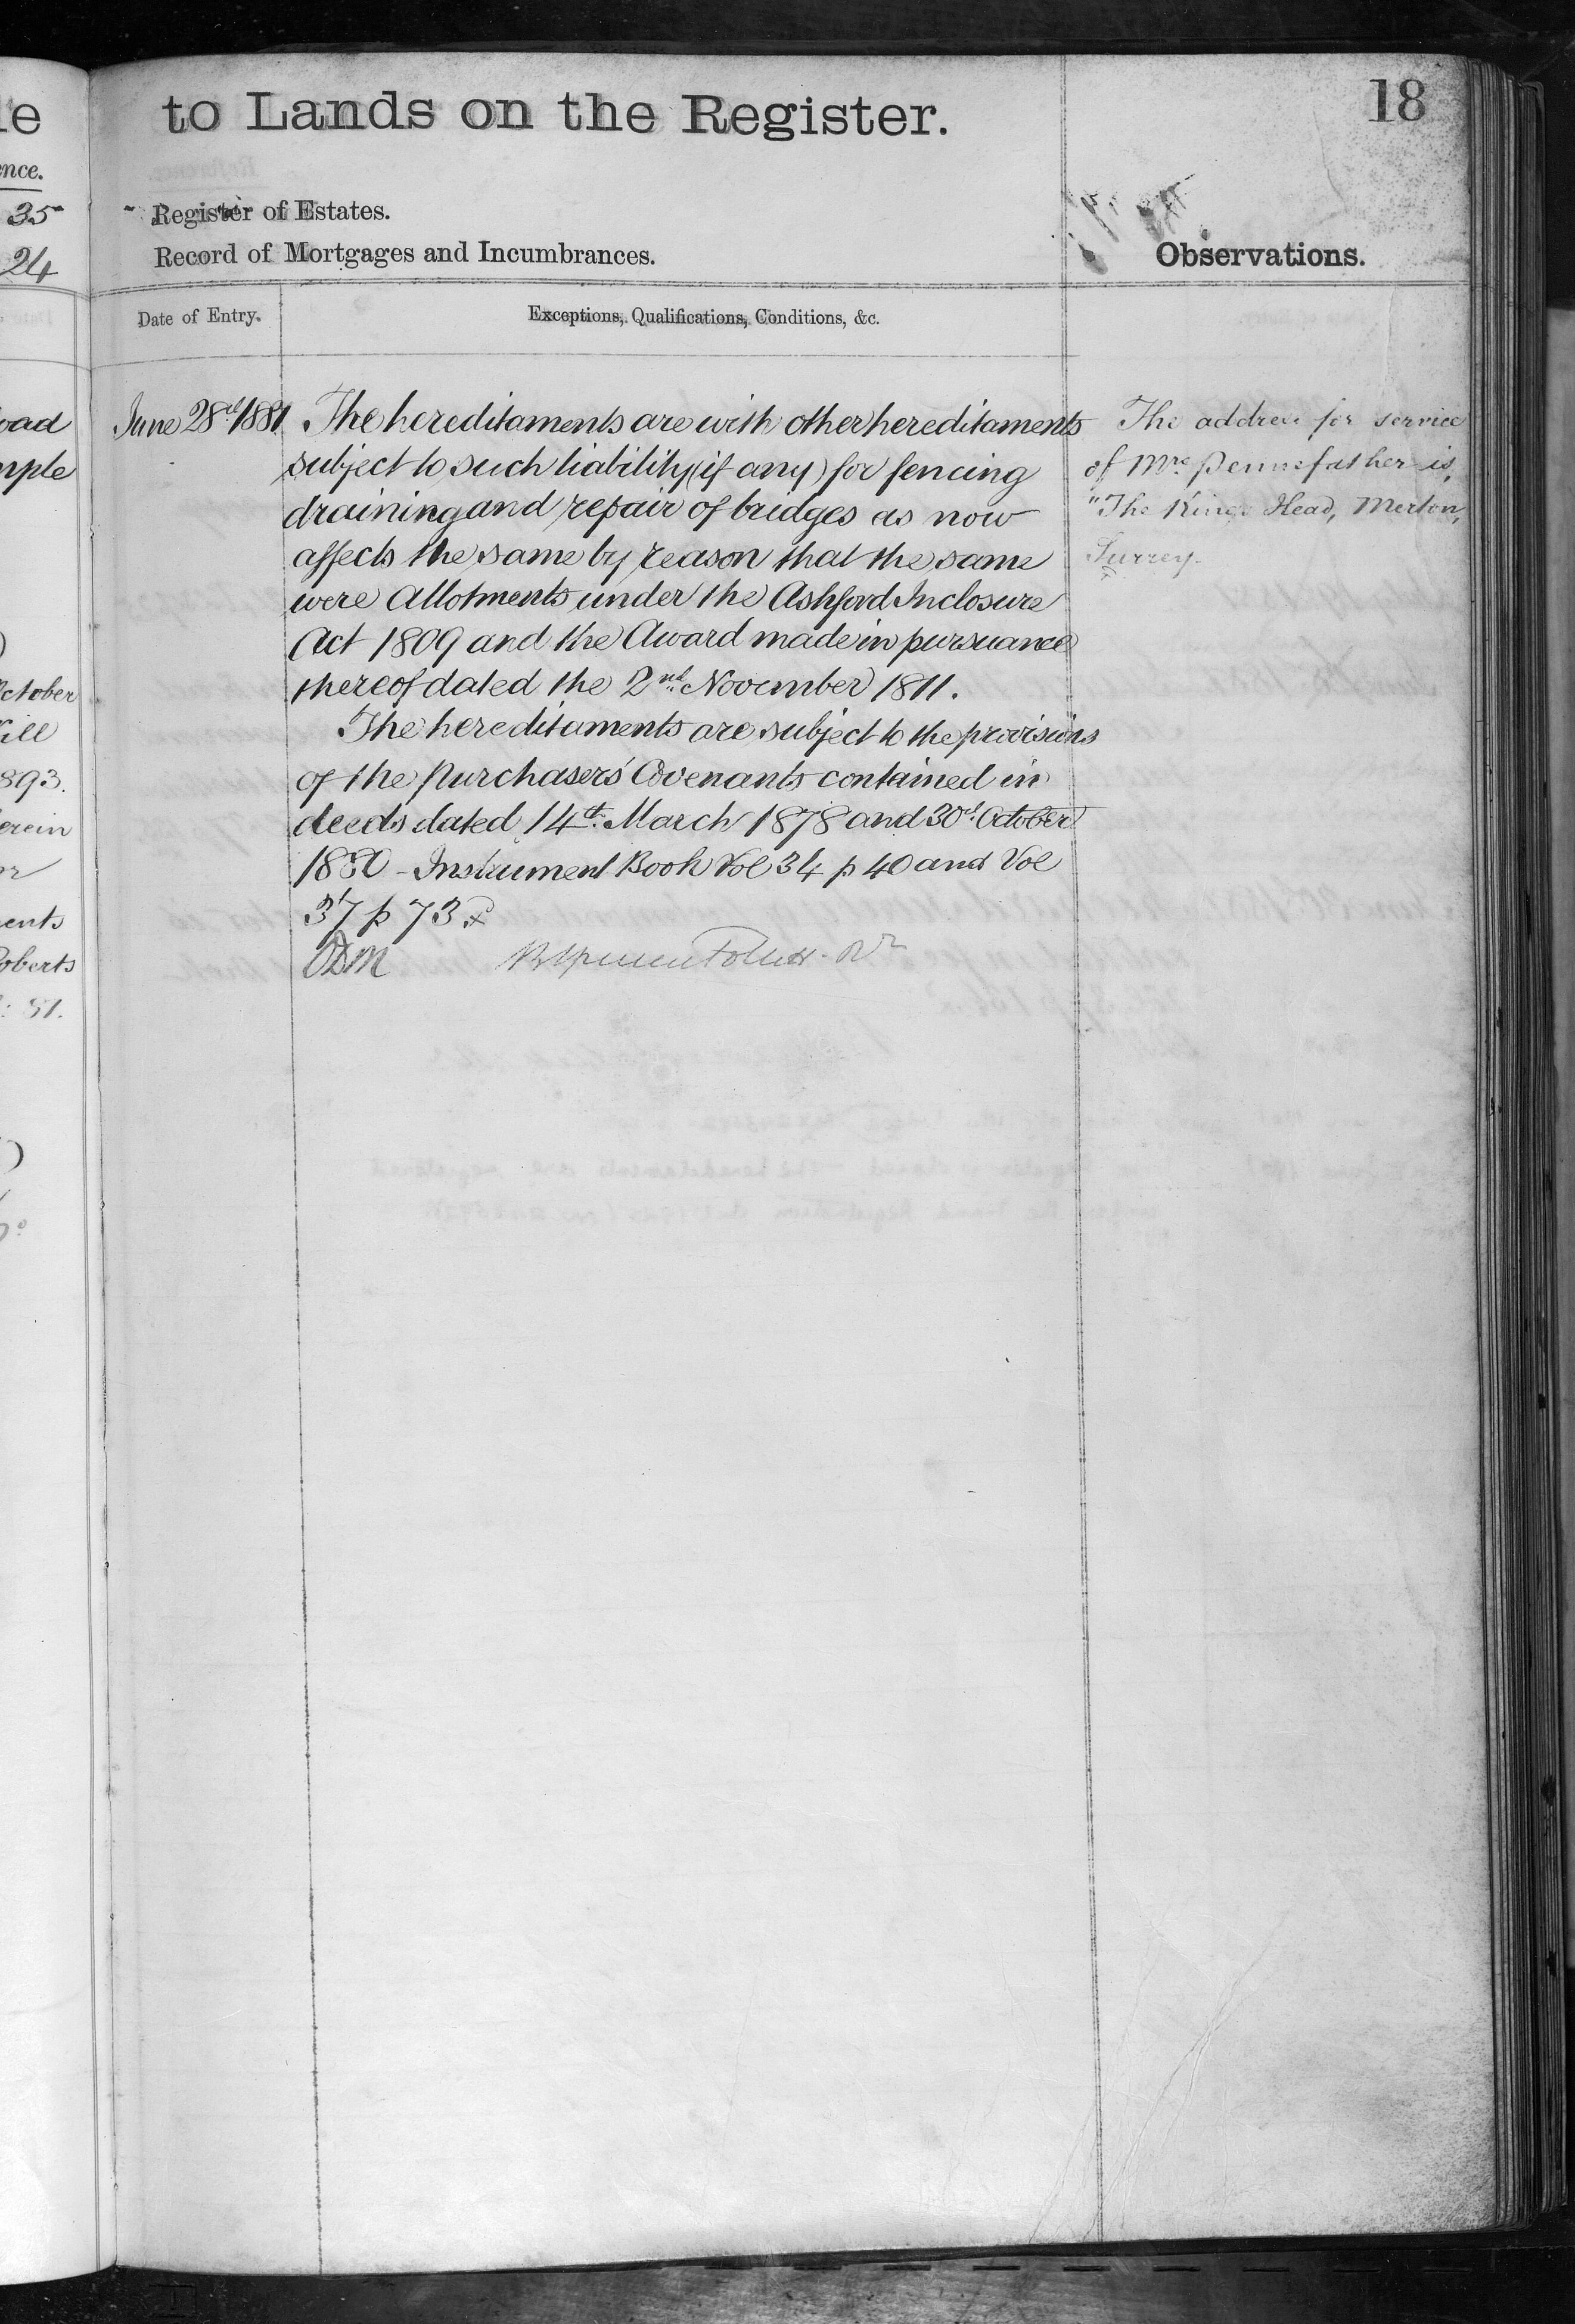 to Lands on the Register.
18
Register of Estates.
Record of Mortgages and Incumbrances.
Observations.
Date of Entry.
Exceptions, Qualifications, Conditions, &c.
June 28th 1881
The hereditaments are with other hereditaments
subject to such liability (if any) for fencing
draining and repair of bridges as now
affects the same by reason that the same
were Allotments under the Ashford Inclosure
Act 1809 and the Award made in pursuance
thereof dated the 2nd November 1811.
The hereditaments are subject to the provisions
of the Purchasers' Covenants contained in
deeds dated 14th March 1878 and 30th October
1880 - Instrument Book Vol 34 p 40 and Vol
37 p 73
The address for service
of Mrs Pennefather is,
"The Kings Head, Merton,
Surrey.
le
ence.
35
24
oad
mple
October
Will
1893.
erein
ents
Roberts
: 81.